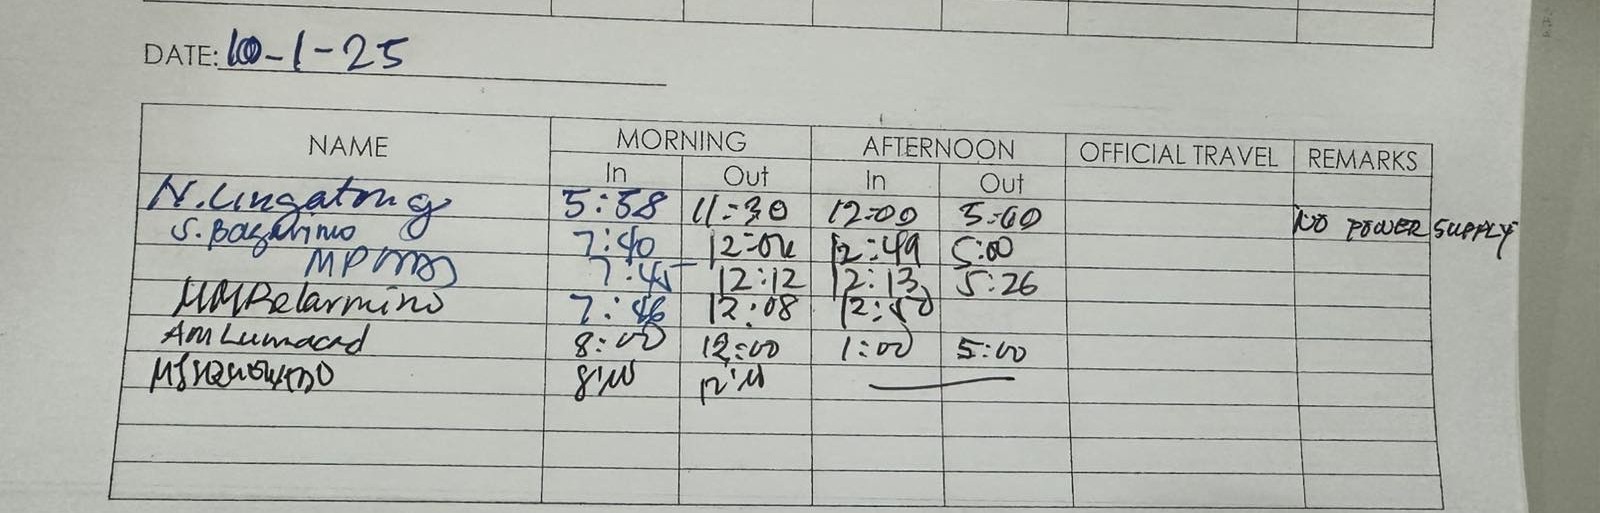 DATE: 10-1-25
NAME MORNING AFTERNOON OFFICIAL TRAVEL REMARKS
In Out In Out
N. Lingatong 5:58 11:30 12:00 5:00 NO POWER SUPPLY
S. Bagarino 7:40 12:49 5:00
7:45 12:12 12:13 5:26
MMBelarmino 7:46 12:08 12:50
AM Lumacad 8:00 12:00 1:00 5:00